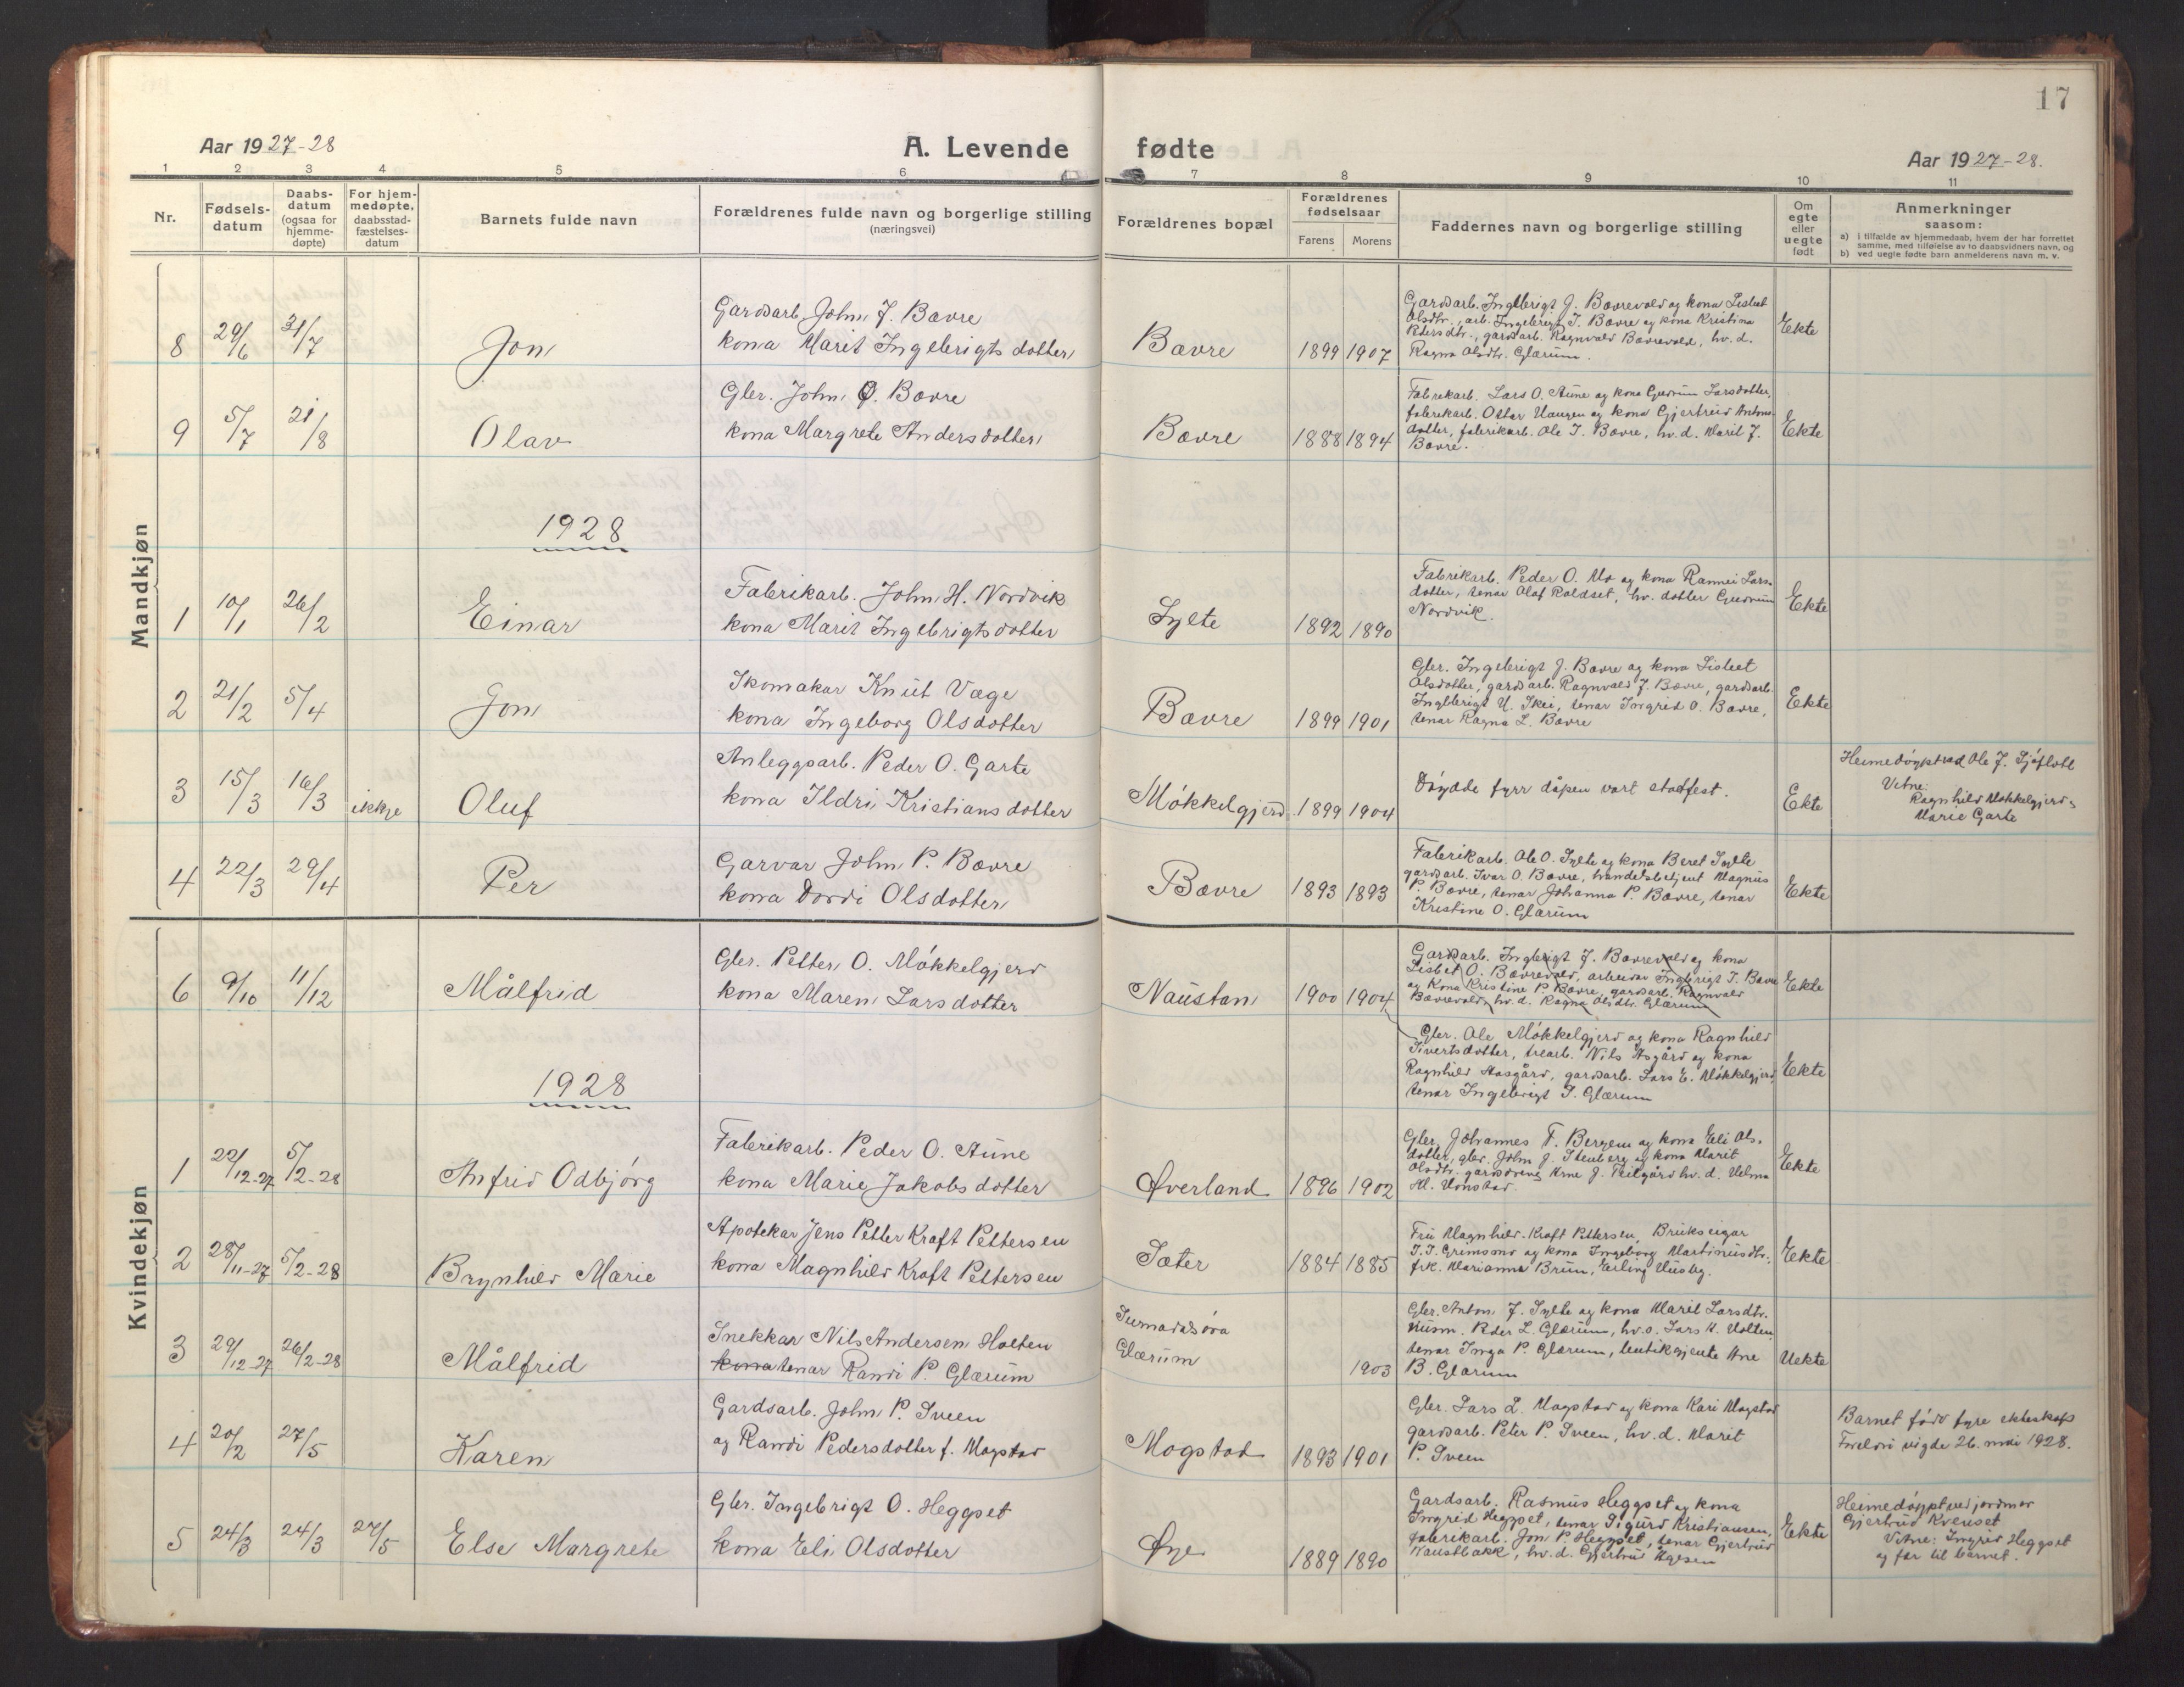 17
Aar 1927-28
A. Levende fødte
Aar 1927-28.
1 2 3 4 5 6 7 8 9 10 11
Nr.
Fødselsdatum
Daabsdatum (ogsaa for hjemmedøpte)
For hjemmedøpte, daabsstadfæstelsesdatum
Barnets fulde navn
Forældrenes fulde navn og borgerlige stilling (næringsvei)
Forældrenes bopæl
Forældrenes fødselsaar
Farens Morens
Faddernes navn og borgerlige stilling
Om egte eller uegte født
Anmerkninger saasom:
a) i tilfælde av hjemmedaab, hvem der har forrettet samme, med tilføielse av to daabsvidners navn, og
b) ved uegte fødte barn anmelderens navn m. v.
Mandkjøn
8 29/6 31/7 Jon
Gardsarb. John J. Bævre
kona Marit Ingebrigtsdotter
Bævre 1899 1907
Gardsarb. Ingebrigt J. Bævrevold og kona Lisbet
Olsdtr., arb. Ingebrigt I. Bævre og kona Kristina
Petersdtr., gardsarb. Ragnvald Bævrevold, hv. d.
Ragna Olsdtr. Glærum.
Ekte
9 5/7 21/8 Olav
Gbr. John O. Bævre
kona Margrete Andersdotter
Bævre 1888 1894
Fabrikarb. Lars O. Aune og kona Gudrun Larsdotter,
fabrikarb. Ottar Haugen og kona Gjertrud Antonsdotter, fabrikarb. Ole I. Bævre, hv. d. Marit J.
Bævre.
Ekte
1928
1 10/1 26/2 Einar
Fabrikarb. John H. Nordvik
kona Marit Ingebrigtsdotter
Sylte 1892 1890
Fabrikarb. Peder O. Mo og kona Rannei Larsdotter, tenar Olaf Roldset, hv. dotter Gudrun
Nordvik.
Ekte
2 21/2 5/4 Jon
Skomakar Knut Væge
kona Ingeborg Olsdotter
Bævre 1899 1901
Gbr. Ingebrigt J. Bævre og kona Lisbet
Olsdotter, gardsarb. Ragnvald J. Bævre, gardsarb.
Ingebrigt U. Skei, tenar Ingrid O. Bævre,
tenar Ragna L. Bævre
Ekte
3 15/3 16/3 ikkje Oluf
Anleggsarb. Peder O. Garte
kona Ildri Kristiansdotter
Møkkelgjerd 1899 1904
Døydde fyrr dåpen vart stadfest.
Ekte
Heimedøypt ved Ole J. Sjøflot
Vitne:
Ragnhild Møkkelgjerd,
Marie Garte
4 22/3 29/4 Per
Garvar John P. Bævre
kona Dordi Olsdotter
Bævre 1893 1893
Fabrikarb. Ole O. Sylte og kona Beret Sylte
gardsarb. Ivar O. Bævre, handelsbetjent Magnus
P. Bævre, tenar Johanna P. Bævre, tenar
Kristine O. Glærum
Ekte
Kvindekjøn
6 9/10 11/12 Målfrid
Gbr. Petter O. Møkkelgjerd
kona Maren Larsdotter
Naustan 1900 1904
Gardsarb. Ingebrigt J. Bævrevold og kona
Lisbet O. Bævrevold, arbeidar Ingebrigt I. Bævre
og kona Kristine P. Bævre, gardsarb. Ragnvald
Bævrevold, hv. d. Ragna Olsdtr. Glærum
Ekte
Gbr. Ole Møkkelgjerd og kona Ragnhild
Sivertsdotter, trearb. Nils Åsgård og kona
Ragnhild Aasgård, gardsarb. Lars E. Møkkelgjerd,
tenar Ingebrigt I. Glærum
Ekte
1928
1 22/12-27 5/2-28 Anfrid Odbjørg
Fabrikarb. Peder O. Aune
kona Marie Jakobsdotter
Øverland 1896 1902
Gbr. Johannes F. Bergem og kona Eli Olsdotter, gbr. John J. Stenberg og kona Marit
Olsdtr. gardsdreng Arne J. hv. d. Helma
Ekte
2 28/11-27 5/2-28 Brynhild Marie
Apotekar Jens Petter Kraft Pettersen
kona Magnhild Kraft Pettersen
Sæter 1884 1885
Fru Magnhild Kraft Pettersen, Brukseigar
I. I. Gremsmo og kona Ingeborg Martinusdtr.,
frk. Marianna Brun, Erling Husby.
Ekte
3 29/12-27 26/2-28 Målfrid
Snekkar Nils Andersen Holten
kona tenar Randi P. Glærum
Surnadalsøra
Glærum
1903
Gbr. Anton J. Sylte og kona Marit Larsdtr.
Husm. Peder L. Glærum, hv. s. Lars A. Holten
tenar Inga P. Glærum, butikgjente Ane
B. Glærum
Uekte
4 20/2 27/5 Karen
Gardsarb. John P. Sveen
og Randi Pedersdotter f. Mogstad
Mogstad 1893 1901
Gbr. Lars L. Mogstad og kona Kari Mogstad
gardsarb. Peter P. Sveen, hv. d. Marit
P. Sveen
Barnet född fyre ekteskap
Foreldri vigde 26. mai 1928.
5 24/3 24/3 27/5 Else Margrete
Gbr. Ingebrigt O. Heggset
kona Eli Olsdotter
Øye 1889 1890
Gardsarb. Rasmus Heggset og kona
Ingrid Heggset, tenar Sigurd Kristiansen,
fabrikarb. Jon P. Heggset, tenar Gjertrud
Naustbakk, hv. d. Gjertrud
Ekte
Heimedøypt ved jordmor
Gjertrud Kvenset
Vitne: Ingrid Heggset
og far til barnet.